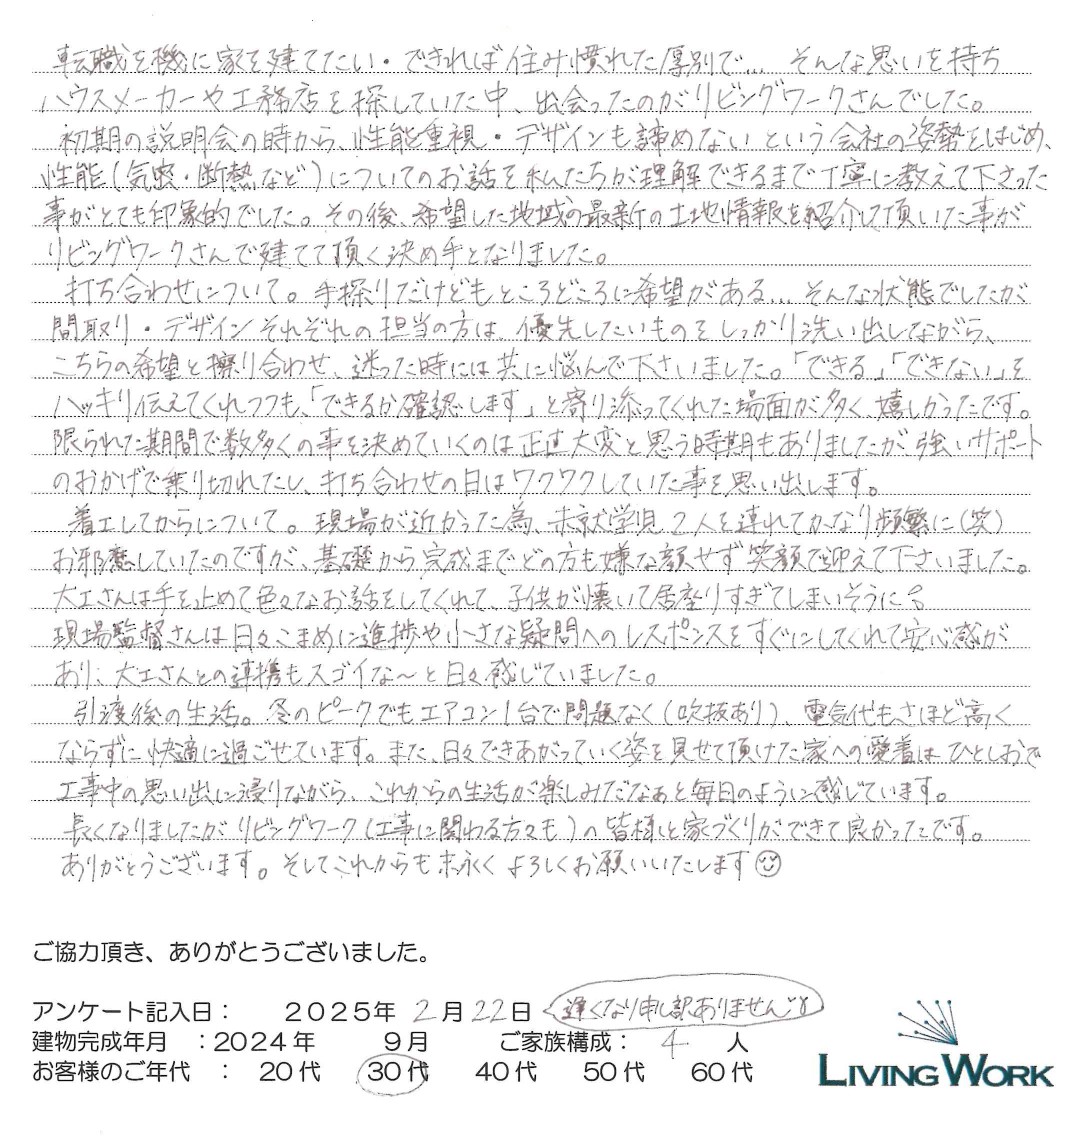 転職を機に家を建てたい・できれば住み慣れた厚別で… そんな思いを持ち
ハウスメーカーや工務店を探していた中、出会ったのがリビングワークさんでした。
初期の説明会の時から、性能重視・デザインも諦めない という会社の姿勢をはじめ、
性能(気密・断熱など)についてのお話を私たちが理解できるまで丁寧に教えて下さった
事がとても印象的でした。その後、希望した地域の最新の土地情報を紹介して頂いた事が
リビングワークさんで建てて頂く決め手となりました。
打ち合わせについて。手探りだけどもところどころに希望がある… そんな状態でしたが
間取り・デザインそれぞれの担当の方は、優先したいものをしっかり洗い出しながら、
こちらの希望と擦り合わせ、迷った時には共に悩んで下さいました。「できる」「できない」を
ハッキリ伝えてくれつつも、「できるか確認します」と寄り添ってくれた場面が多く嬉しかったです。
限られた期間で数多くの事を決めていくのは正直大変と思う時期もありましたが強いサポート
のおかげで乗り切れたし、打ち合わせの日はワクワクしていた事を思い出します。
着工してからについて。現場が近かった為、未就学児2人を連れてかなり頻繁に(笑)
お邪魔していたのですが、基礎から完成までどの方も嫌な顔せず笑顔で迎えて下さいました。
大工さんは手を止めて色々なお話をしてくれて、子供が懐いて居座りすぎてしまいそうに
現場監督さんは日々こまめに進捗や小さな疑問へのレスポンスをすぐにしてくれて安心感が
あり、大工さんとの連携もスゴイな〜と日々感じていました。
引渡後の生活。冬のピークでもエアコン1台で問題なく(吹抜あり)、電気代もさほど高く
ならずに快適に過ごせています。また、日々できあがっていく姿を見せて頂けた家への愛着はひとしおで
工事中の思い出に浸りながら、これからの生活が楽しみだなぁと毎日のように感じています。
長くなりましたがリビングワーク(工事に関わる方々も)の皆様と家づくりができて良かったです。
ありがとうございます。そしてこれからも末永くよろしくお願いいたします☺
ご協力頂き、ありがとうございました。
アンケート記入日： 2025年 2月22日 遅くなり申し訳ありません
建物完成年月 ：2024年 9月 ご家族構成： 4 人
お客様のご年代 ： 20代 30代 40代 50代 60代
LIVING WORK